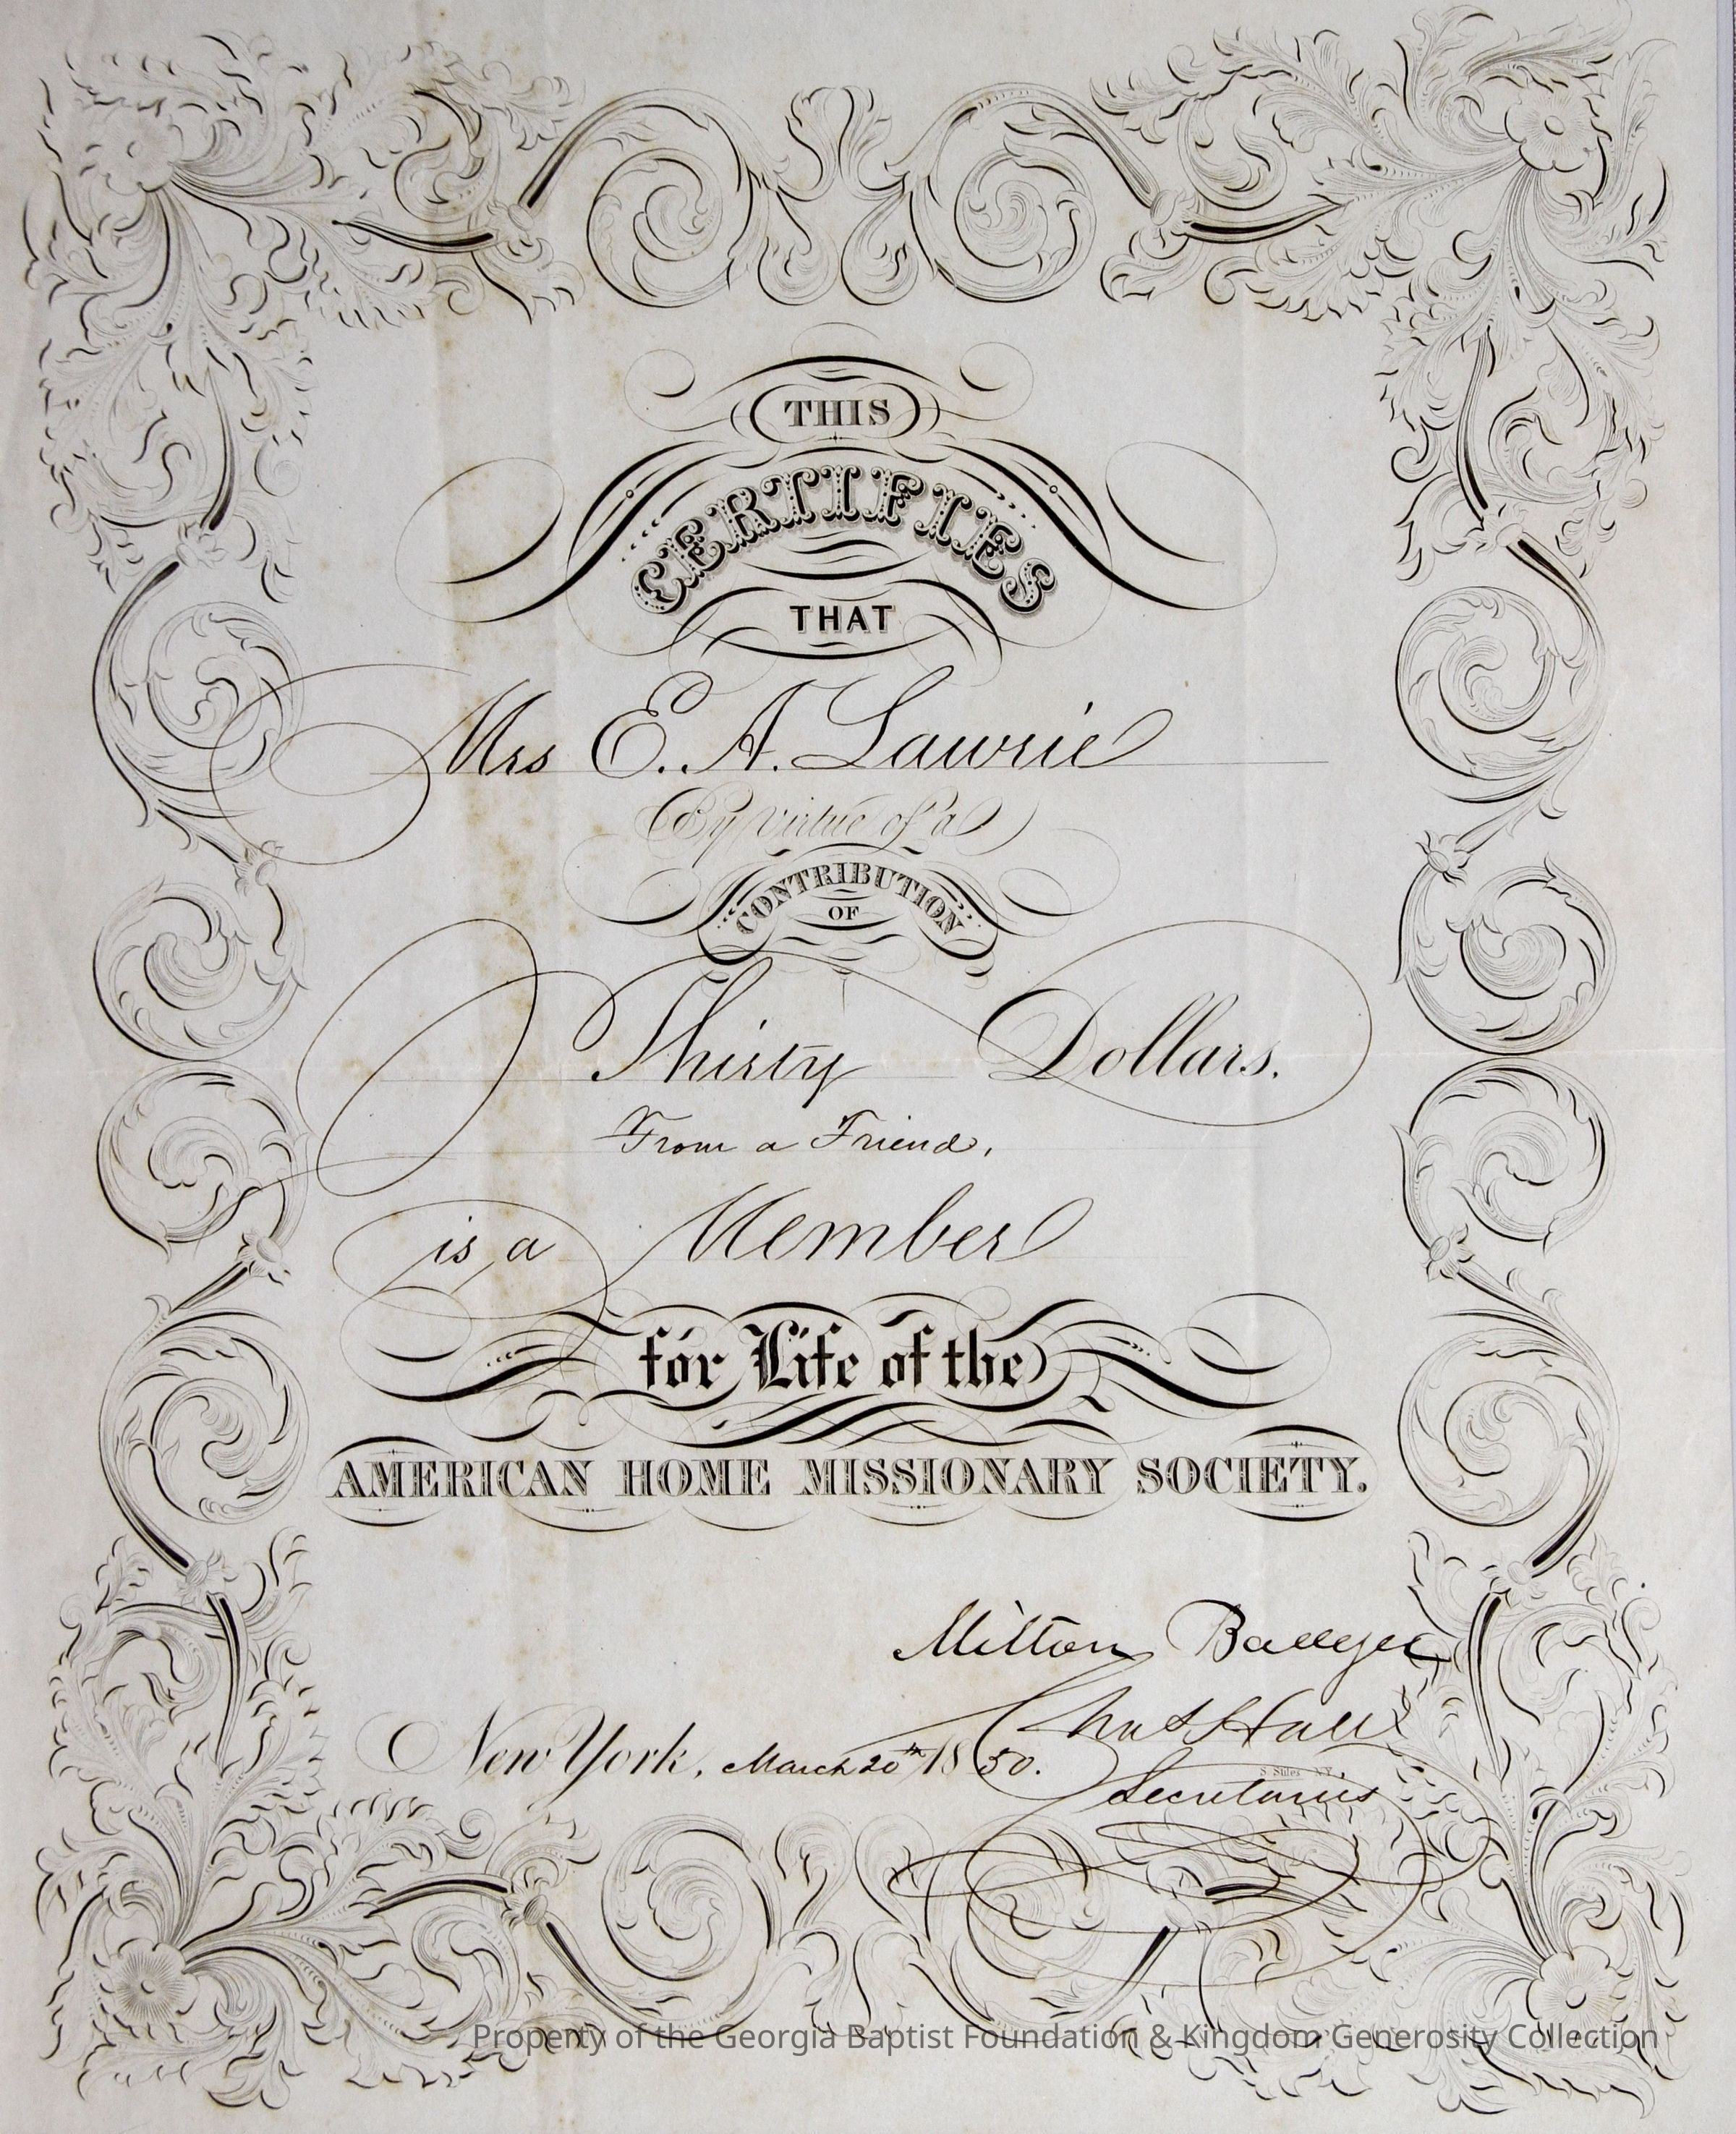 THIS
CERTIFIES
THAT
Mrs E. A. Lawrie
By virtue of a
CONTRIBUTION
OF
Thirty Dollars.
From a Friend,
is a Member
for Life of the
AMERICAN HOME MISSIONARY SOCIETY.
Milton Badger
Chas Hall
New York, March 20th 1850.
S. Stiles N.Y.
Secretaries
Property of the Georgia Baptist Foundation & Kingdom Generosity Collection